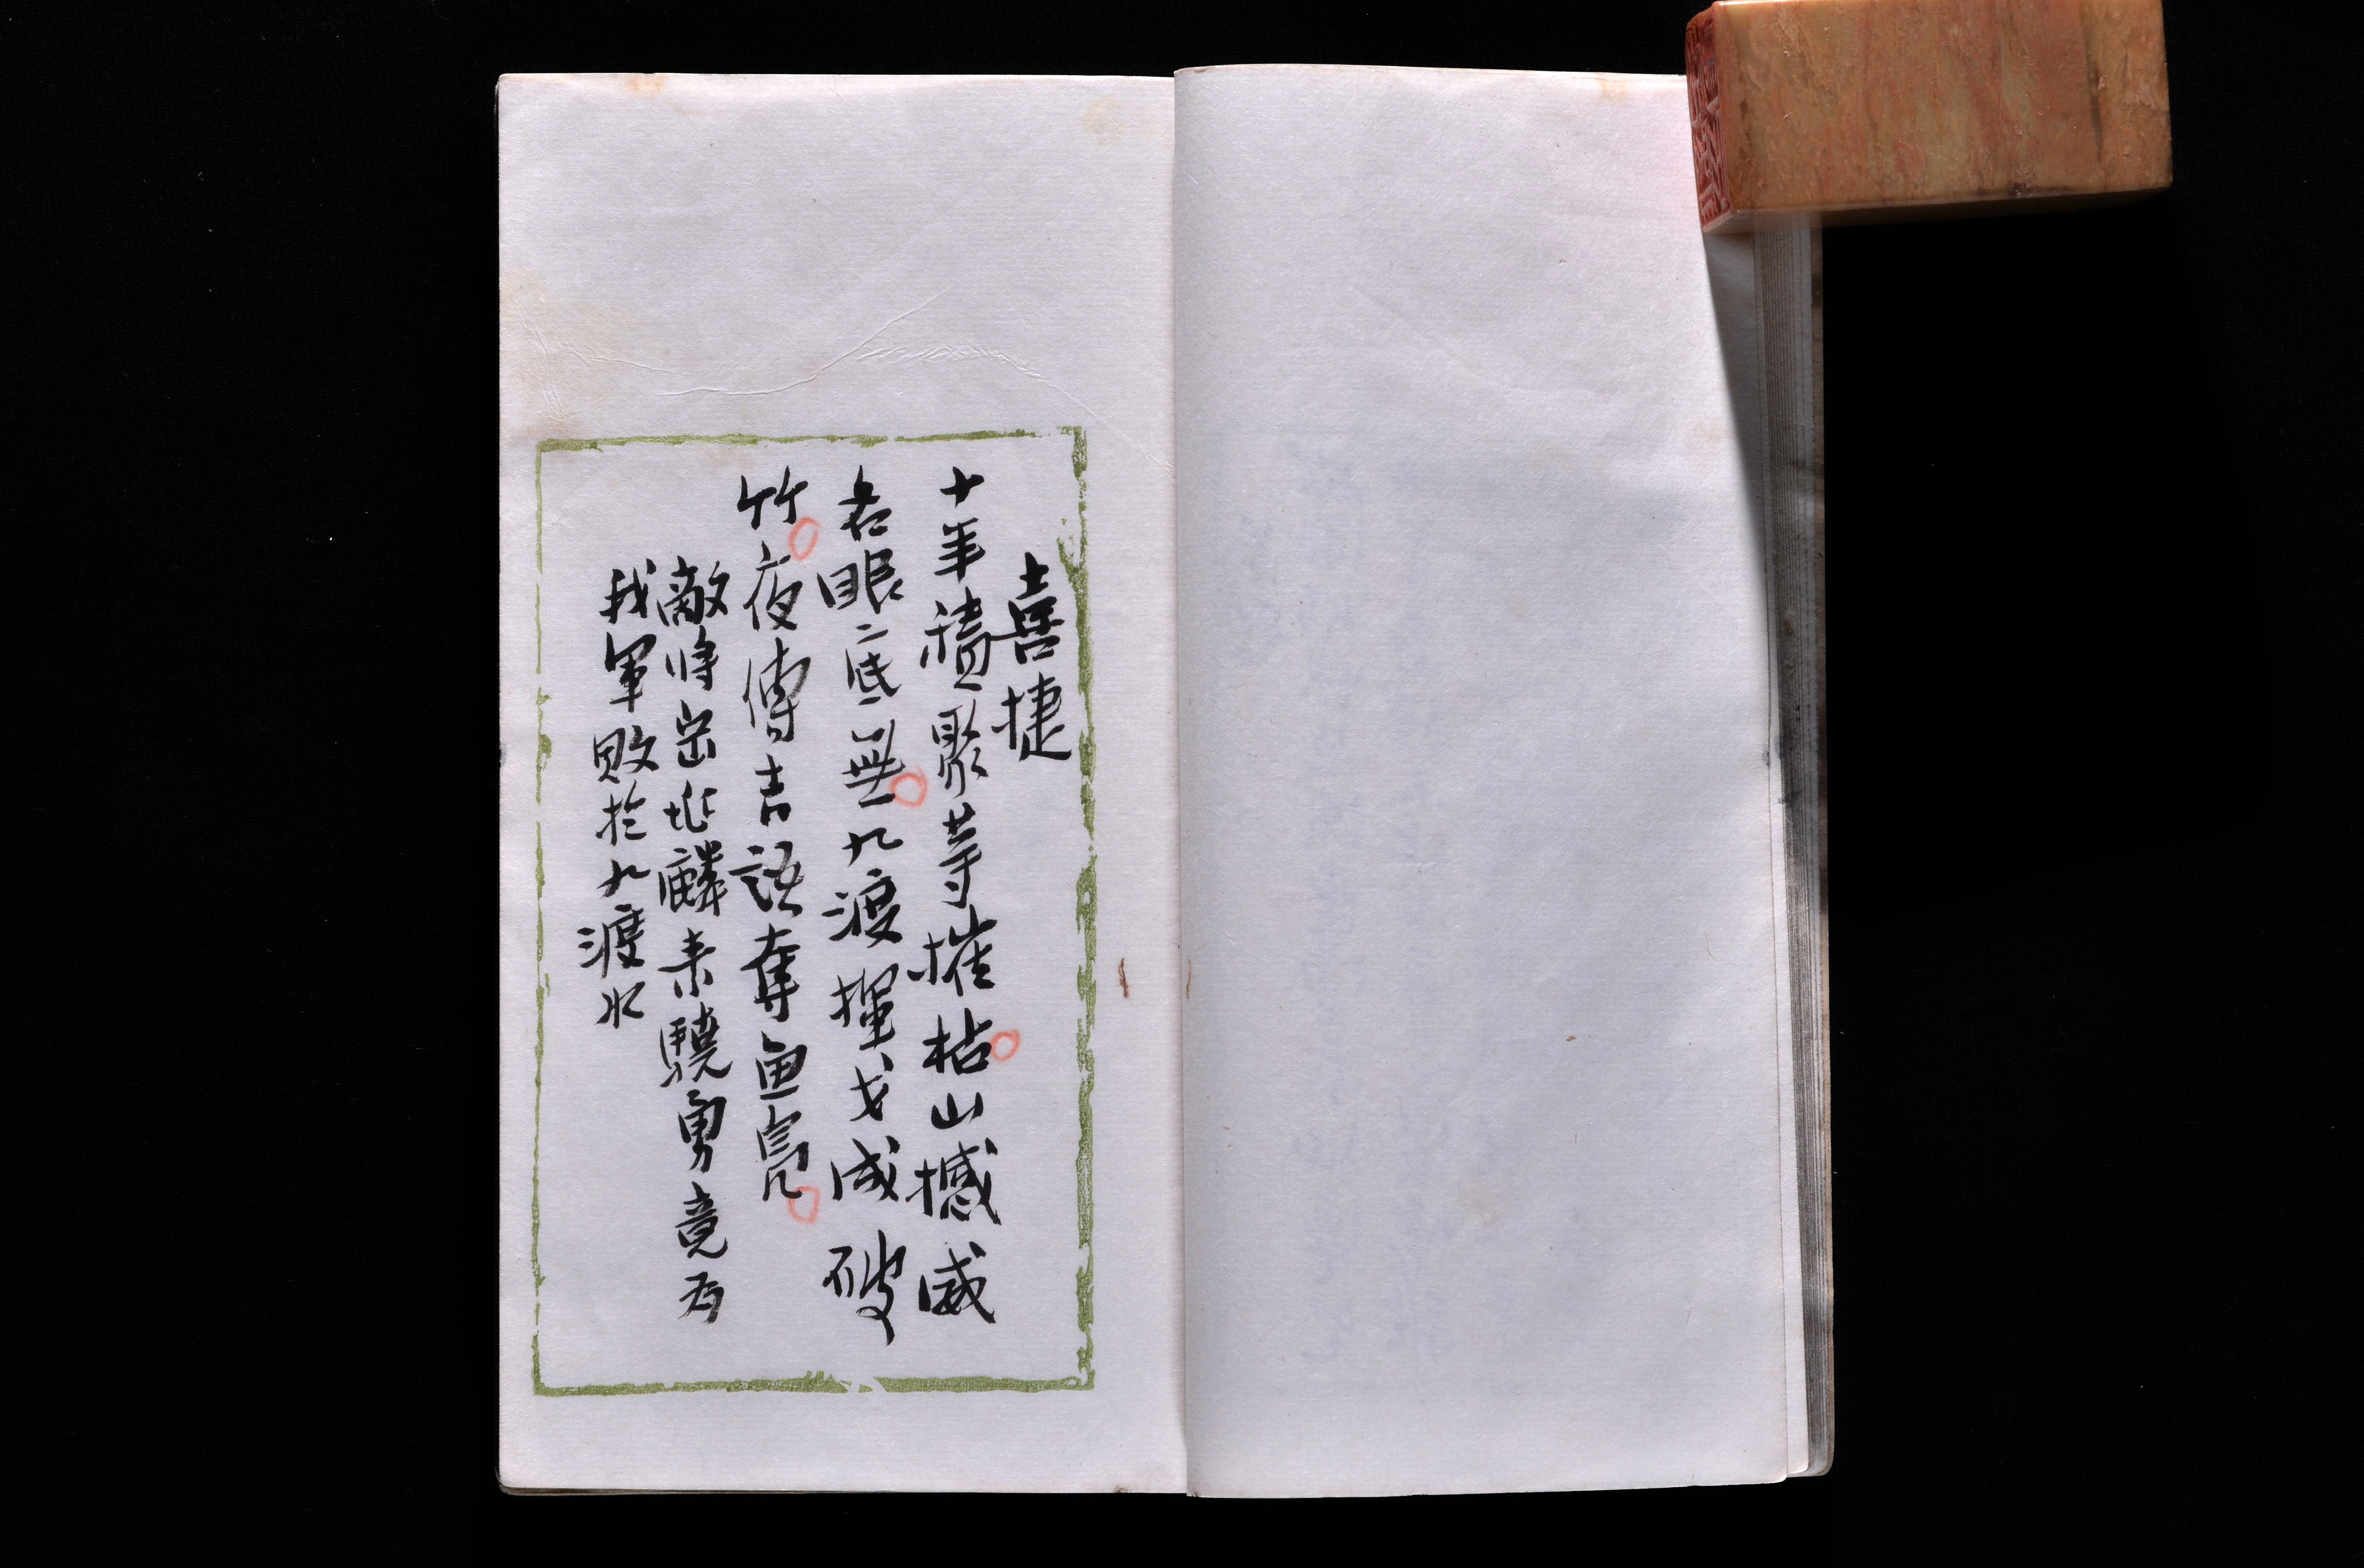 喜捷
十年積聚等摧枯山撼威
名眼底無九渡揮戈成破
竹夜傳吉語奪魚鳧
敵將岳兆麟素驍勇竟为
我軍敗於九渡水